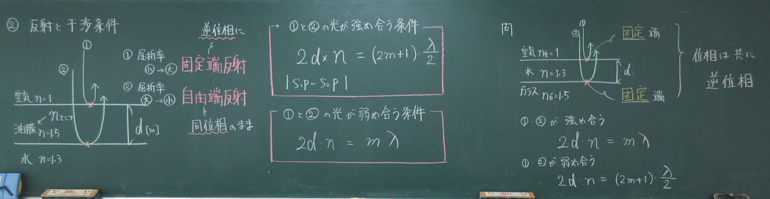 ② 反射と干渉条件
①
②
空気 n=1
油膜 n=1.5
nとして
d [m]
水 n=1.3
逆位相に
① 屈折率
小→大
固定端反射
② 屈折率
大→小
自由端反射
同位相のまま
①と②の光が強め合う条件
2d×n = (2m+1)・λ/2
|S₁P-S₂P|
①と②の光が弱め合う条件
2d・n = mλ
問
①
②
固定 端
空気 n=1
水 n=1.3
d
ガラス nG=1.5
固定 端
位相は共に
逆位相
①②が強め合う
2d・n = mλ
①②が弱め合う
2d・n = (2m+1)・λ/2